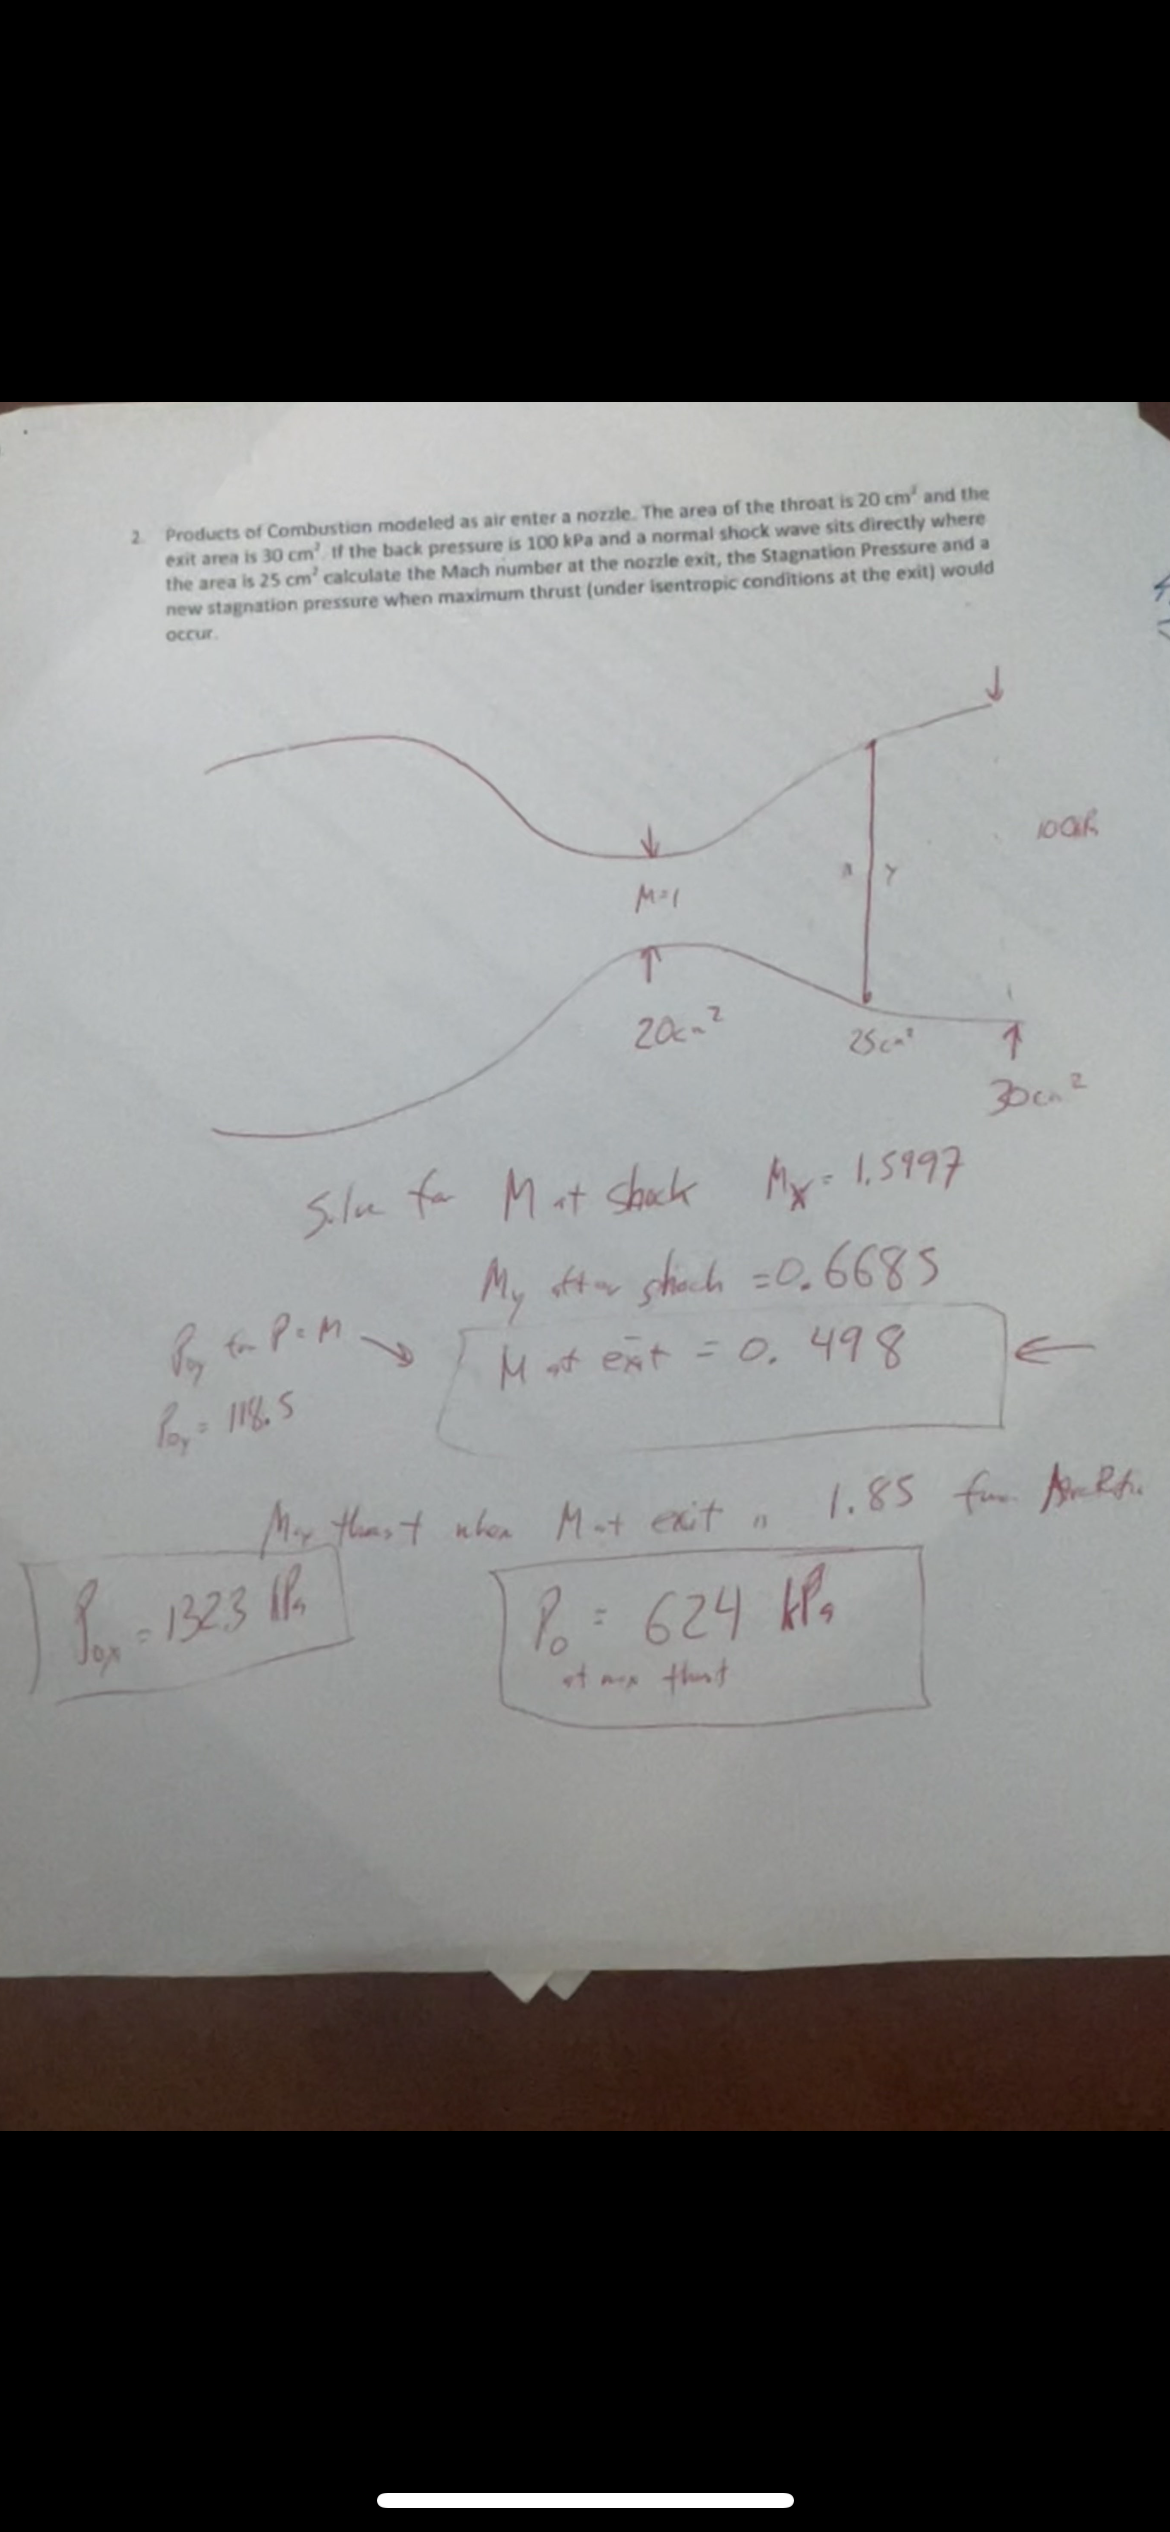 2. Products of Combustion modeled as air enter a nozzle. The area of the throat is 20 cm² and the
exit area is 30 cm². If the back pressure is 100 kPa and a normal shock wave sits directly where
the area is 25 cm² calculate the Mach number at the nozzle exit, the Stagnation Pressure and a
new stagnation pressure when maximum thrust (under isentropic conditions at the exit) would
occur.
M=1
y
20cm²
25cm²
30cm²
Solve for M at shock Mx = 1.5997
My after shock = 0.6685
M at exit = 0.498
Poy = 118.5
Max thrust when M at exit is 1.85 from
Pox = 132.3 kPa
Po = 624 kPa
at max thrust